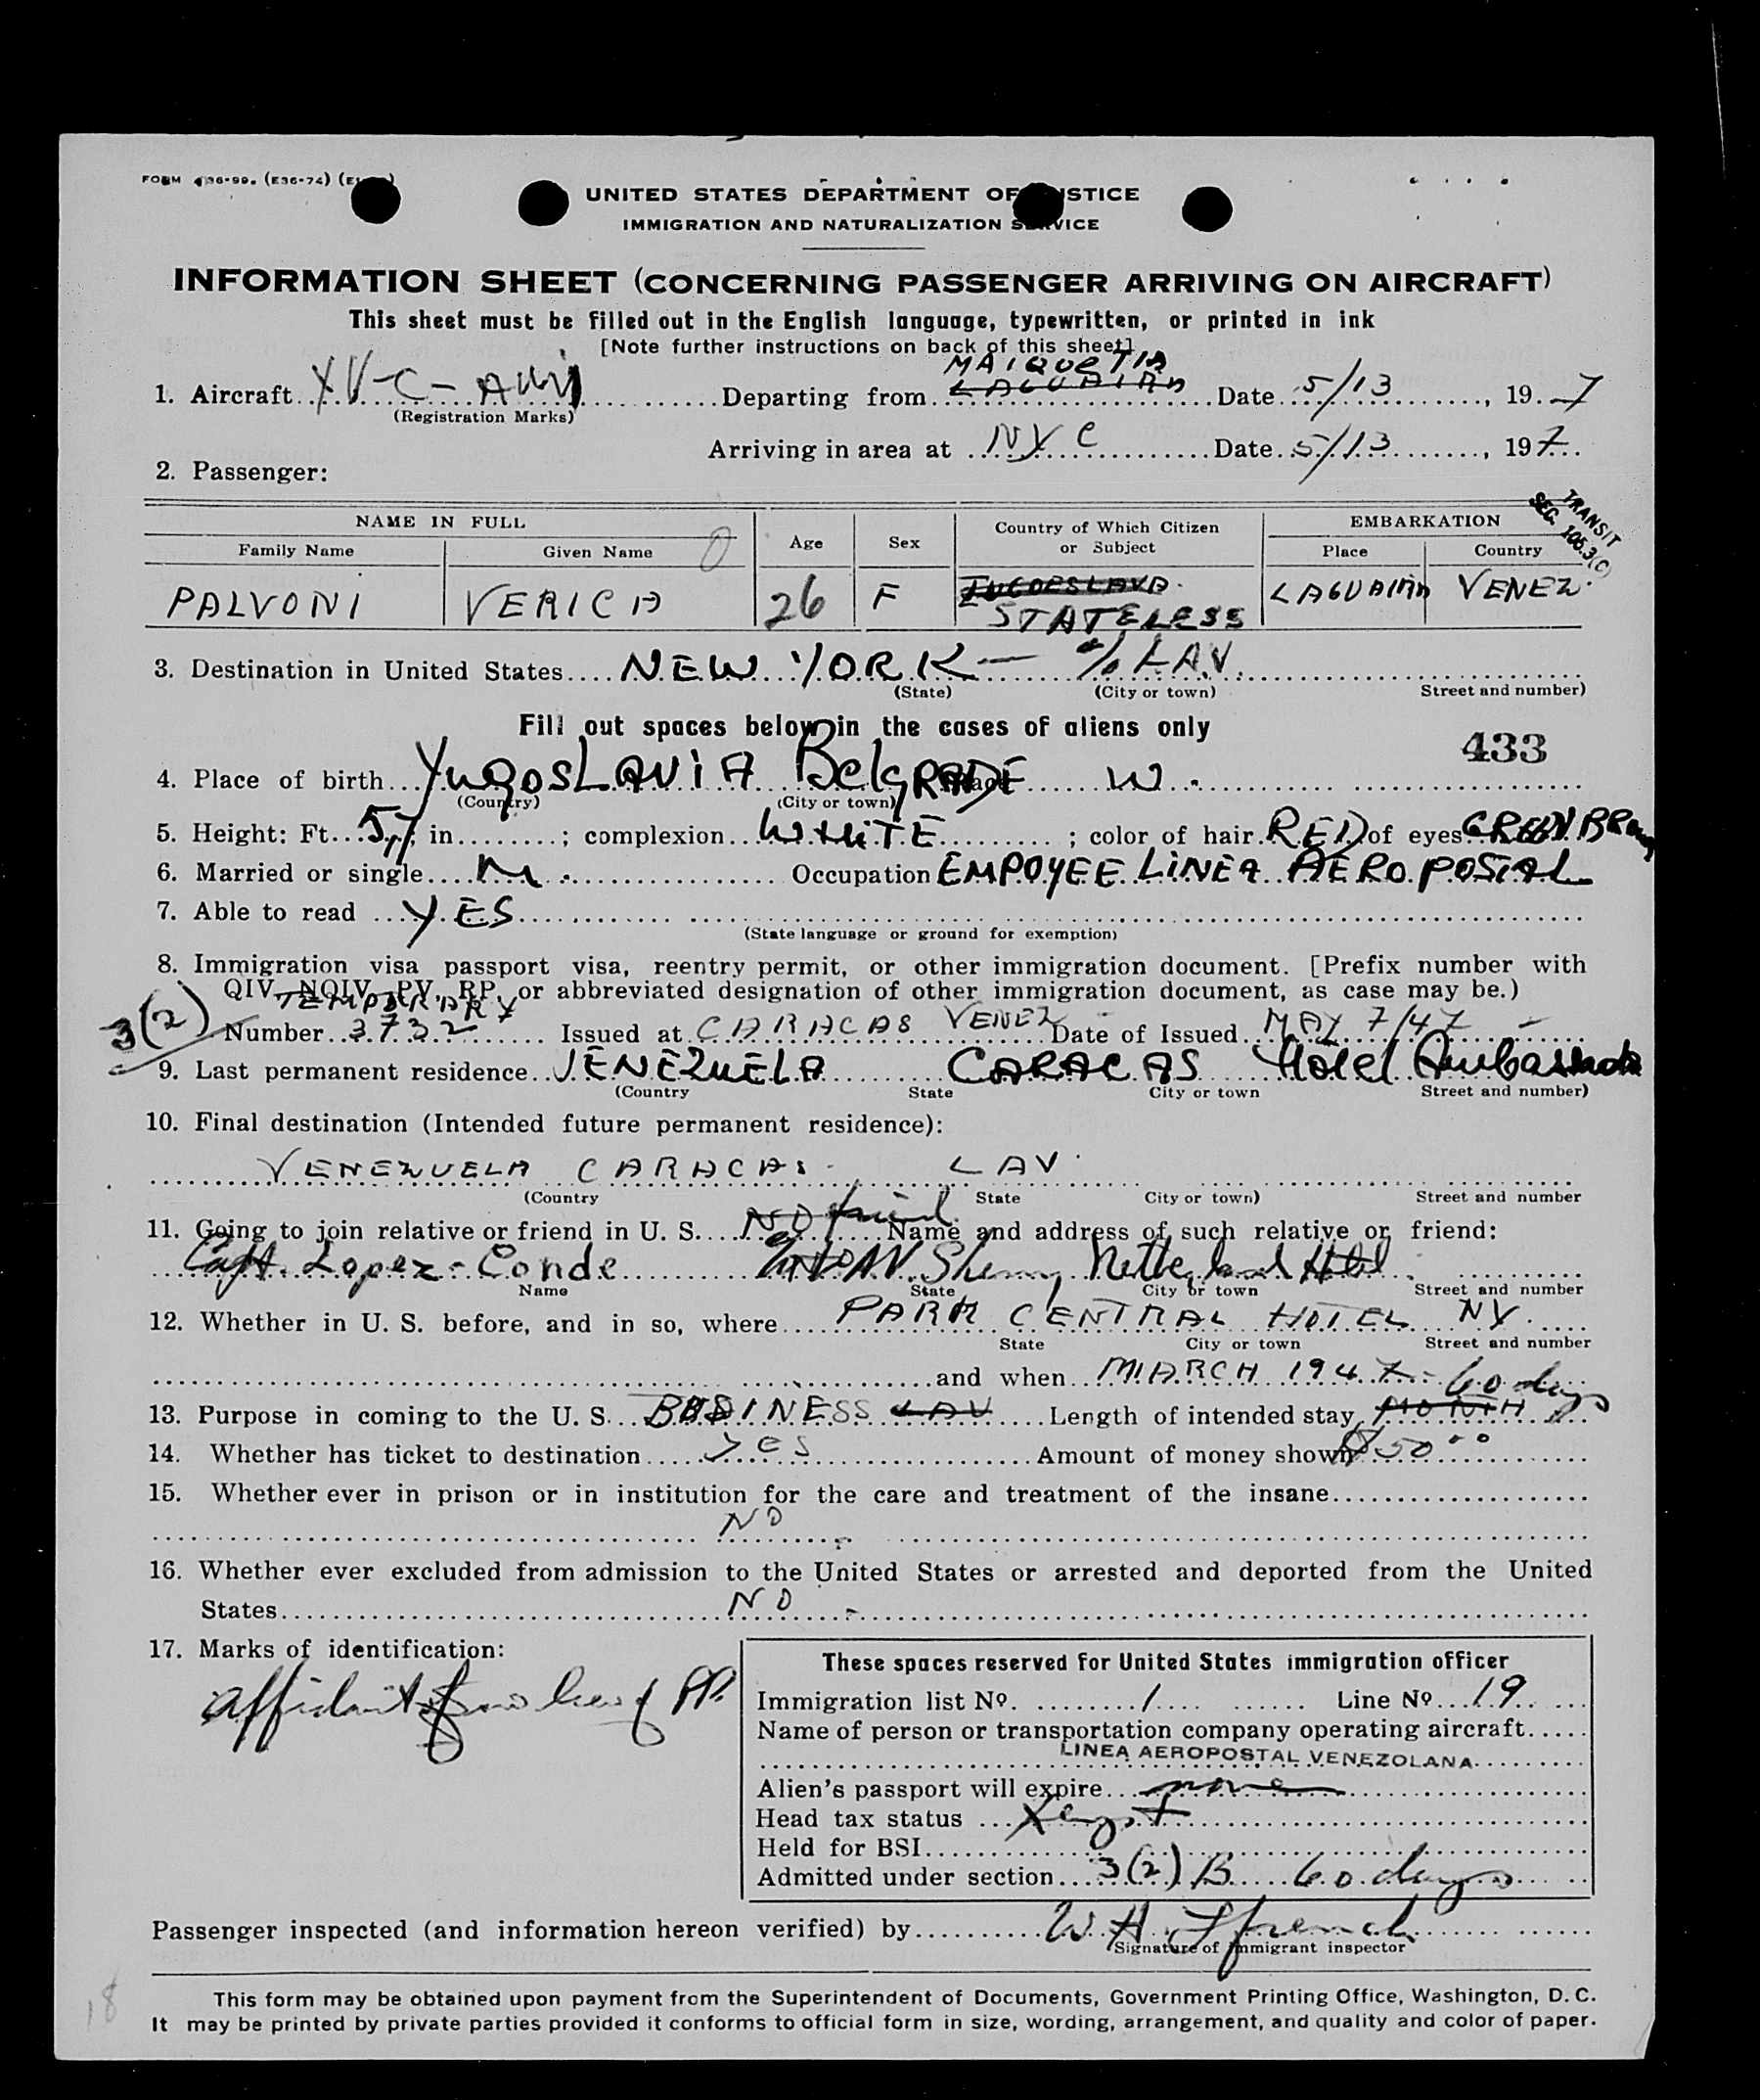 UNITED STATES DEPARTMENT OF JUSTICE
IMMIGRATION AND NATURALIZATION SERVICE
INFORMATION SHEET (CONCERNING PASSENGER ARRIVING ON AIRCRAFT)
This sheet must be filled out in the English language, typewritten, or printed in ink
[Note further instructions on back of this sheet]
MAIQUETIA
1. Aircraft XV-C- (Registration Marks) Departing from LAGUAIRA Date 5/13, 19 7
Arriving in area at NYC Date 5/13, 19 7
2. Passenger:
TRANSIT
SEC. 105.3(C)
NAME IN FULL Age Sex Country of Which Citizen or Subject EMBARKATION
Family Name Given Name Place Country
PALVONI VERICA 26 F STATELESS LAGUAIRA VENEZ.
3. Destination in United States NEW YORK — % LAV.
(State) (City or town) Street and number)
Fill out spaces below in the cases of aliens only
433
4. Place of birth YugosLAViA BelgRADE W.
(Country) (City or town)
5. Height: Ft. 5,7 in ; complexion WHiTE ; color of hair RED of eyes GREEN BRown
6. Married or single M. Occupation EMPOYEE LiNEA AERO POSTAL
7. Able to read YES
(State language or ground for exemption)
8. Immigration visa passport visa, reentry permit, or other immigration document. [Prefix number with
QIV, NQIV, PV, RP, or abbreviated designation of other immigration document, as case may be.)
TEMPORARY
3(2) Number 3732 Issued at CARACAS VENEZ Date of Issued MAY 7/47
9. Last permanent residence VENEZuELA CARACAS Hotel Ambassador
(Country State City or town Street and number)
10. Final destination (Intended future permanent residence):
VENEZUELA CARACAS. LAV.
(Country State City or town) Street and number
11. Going to join relative or friend in U. S. NO friend Name and address of such relative or friend:
Capt. Lopez-Conde Sherry Netherland Hotel
Name State City or town Street and number
12. Whether in U. S. before, and in so, where PARK CENTRAL HOTEL NY.
State City or town Street and number
and when MARCH 1947
60 days
13. Purpose in coming to the U. S. BUSINESS LAV Length of intended stay MONTH
14. Whether has ticket to destination YES Amount of money shown $50.00
15. Whether ever in prison or in institution for the care and treatment of the insane
NO
16. Whether ever excluded from admission to the United States or arrested and deported from the United
States NO
17. Marks of identification:
affidavit in lieu of PP.
These spaces reserved for United States immigration officer
Immigration list No. 1 Line No 19
Name of person or transportation company operating aircraft
LINEA AEROPOSTAL VENEZOLANA
Alien's passport will expire none
Head tax status
Held for BSI
Admitted under section 3(2) B 60 days
Passenger inspected (and information hereon verified) by W. H. Ffrench
Signature of immigrant inspector
18
This form may be obtained upon payment from the Superintendent of Documents, Government Printing Office, Washington, D. C.
It may be printed by private parties provided it conforms to official form in size, wording, arrangement, and quality and color of paper.